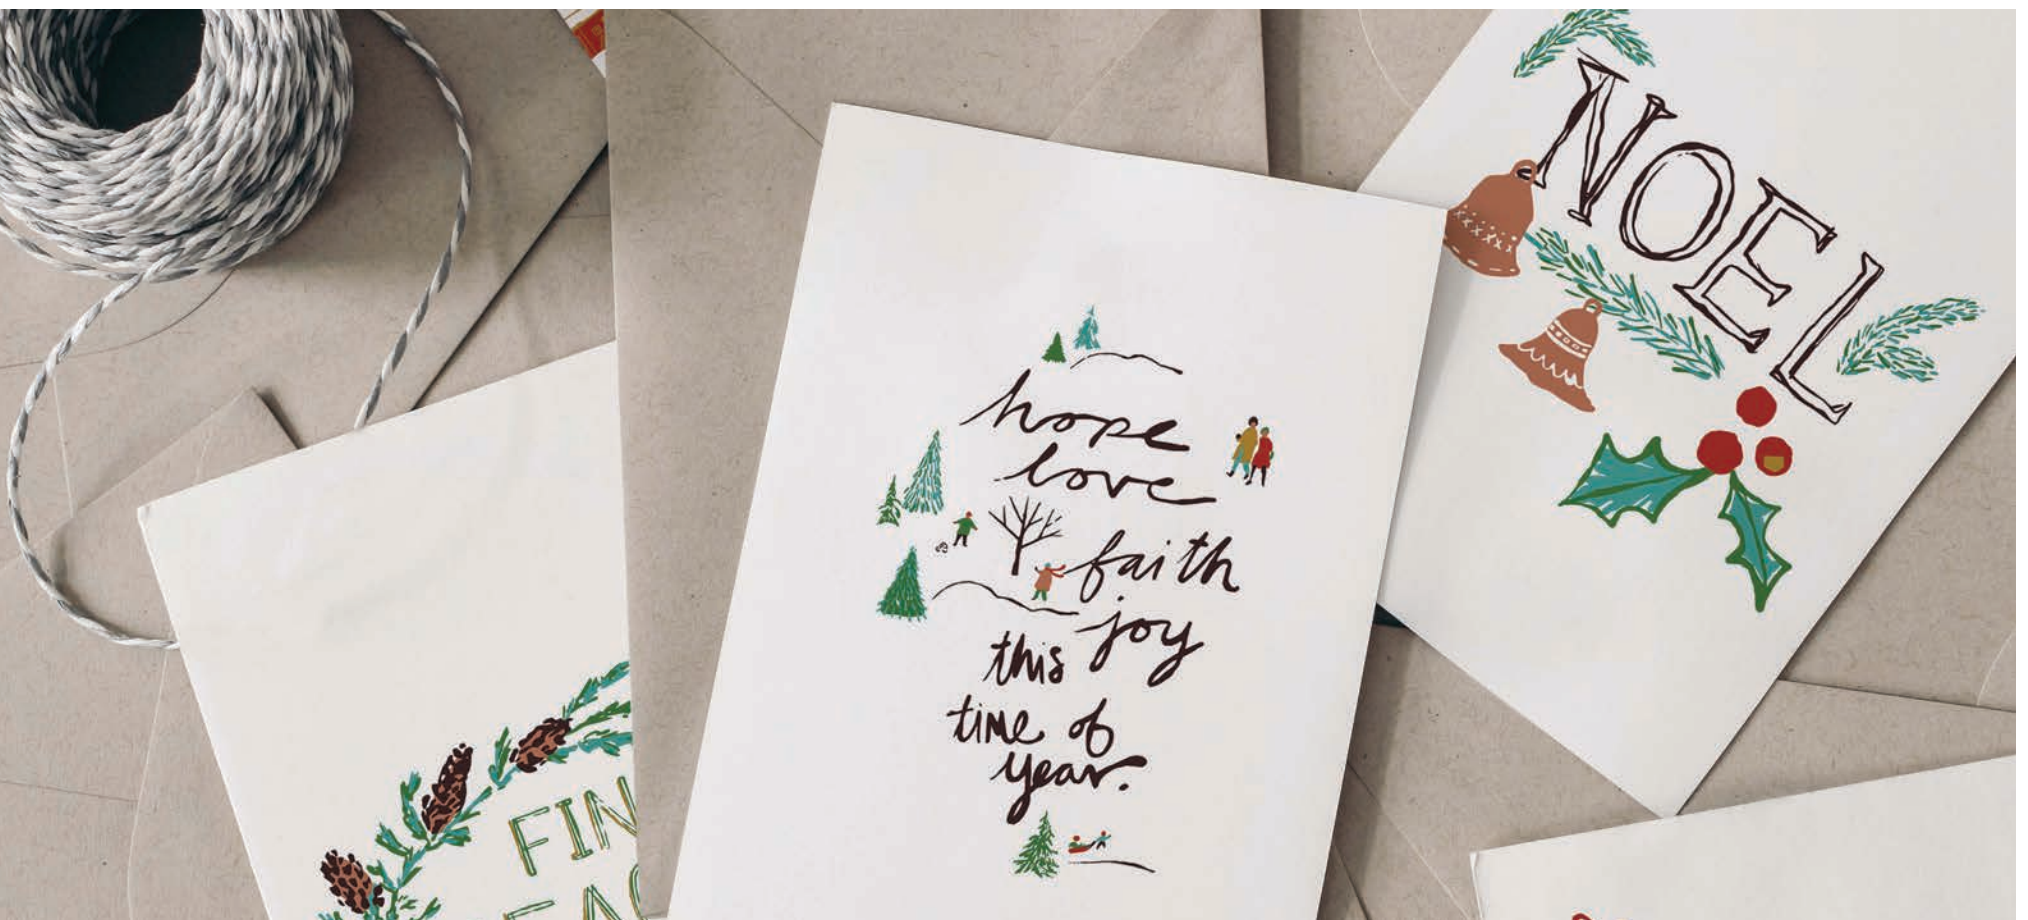 NOEL
hope
love
faith
joy
this
time of
year.
FIN